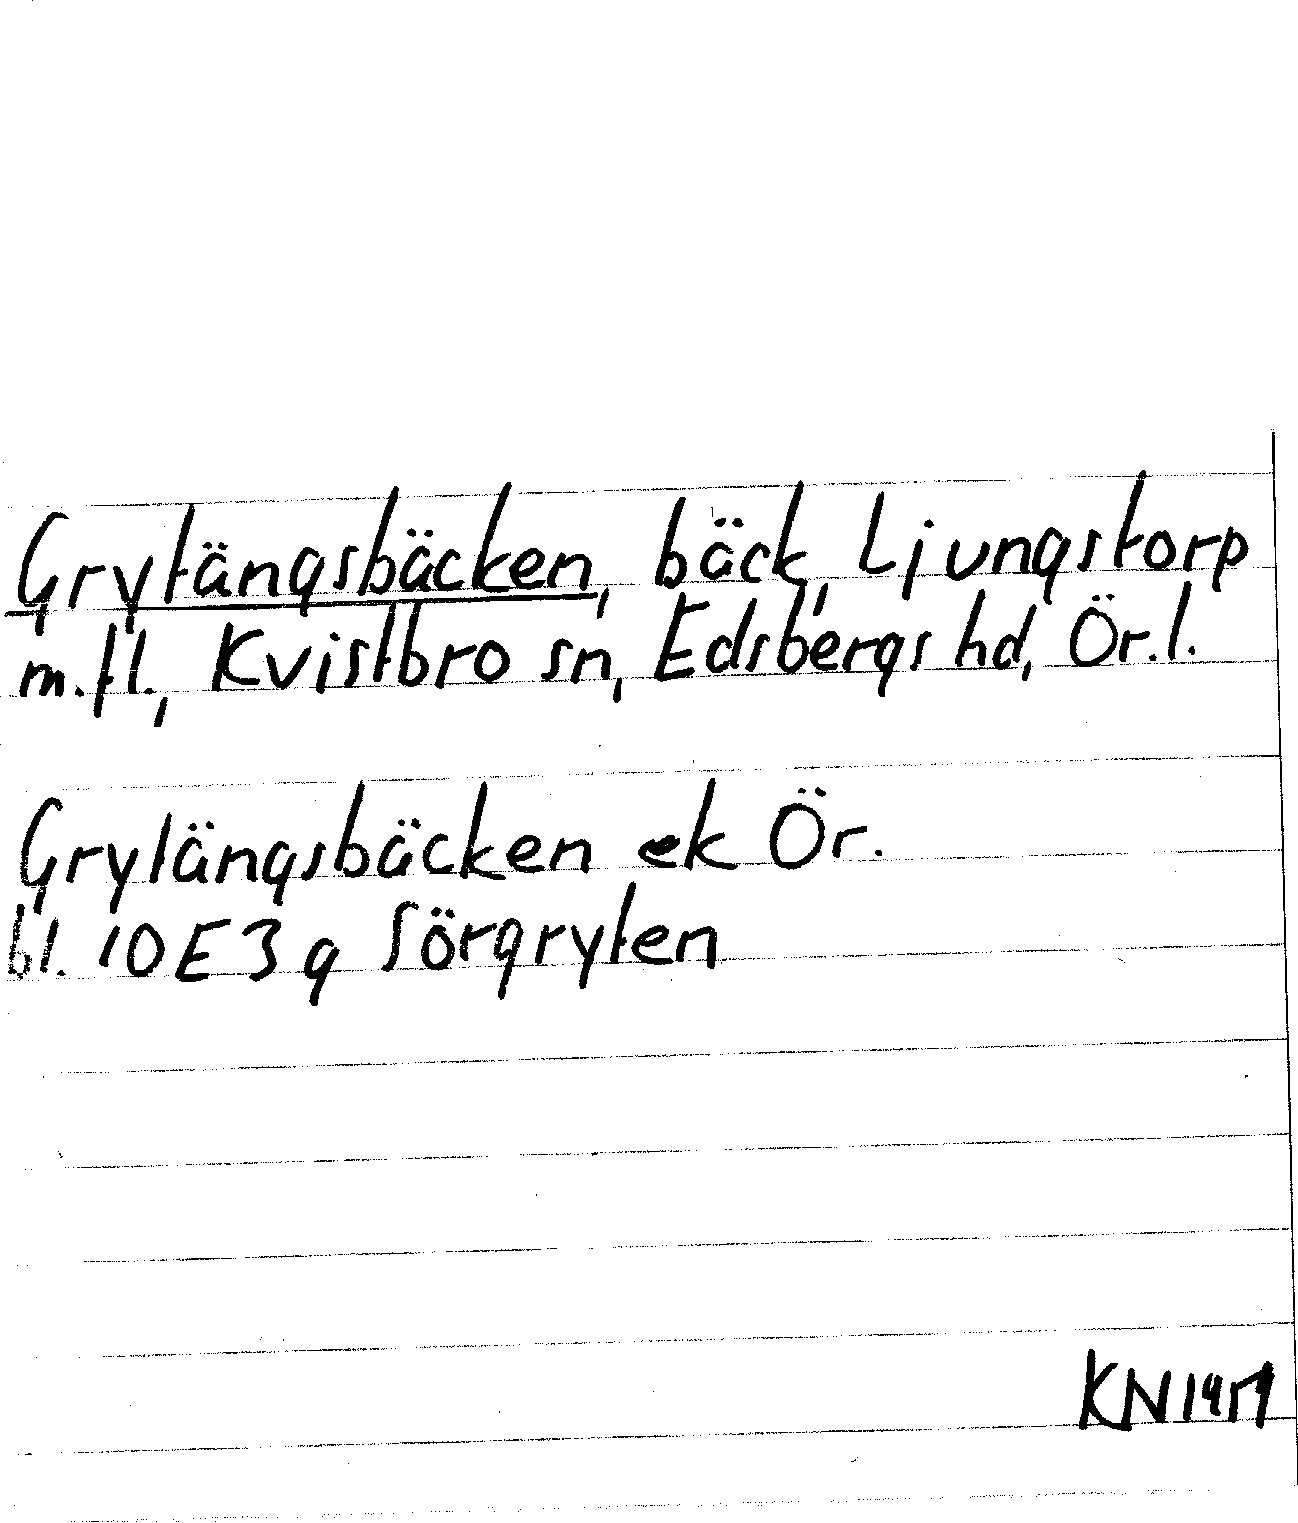 Grytängsbäcken, bäck, Ljungstorp
m.fl., Kvistbro sn, Edsbergs hd, Ör.l.
Grytängsbäcken ek Ör.
bl. 10E3g Sörgryten
KN